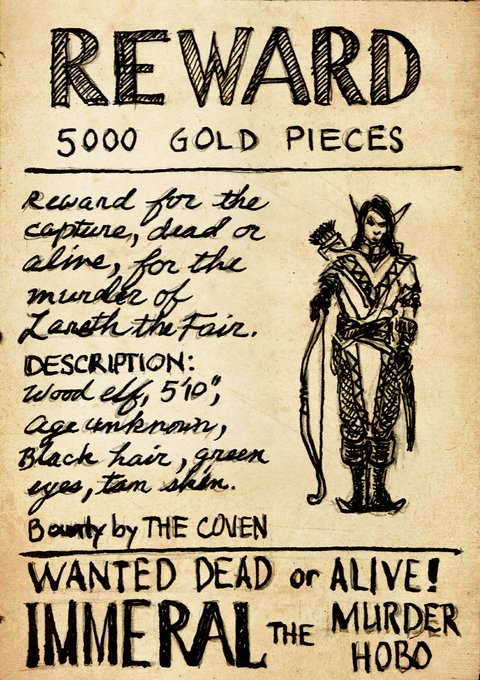 REWARD
5000 GOLD PIECES
Reward for the
capture, dead or
alive, for the
murder of
Lareth the Fair.
DESCRIPTION:
Wood elf, 5'10",
age unknown,
Black hair, green
eyes, tan skin.
Bounty by THE COVEN
WANTED DEAD or ALIVE!
IMMERAL THE MURDER
HOBO